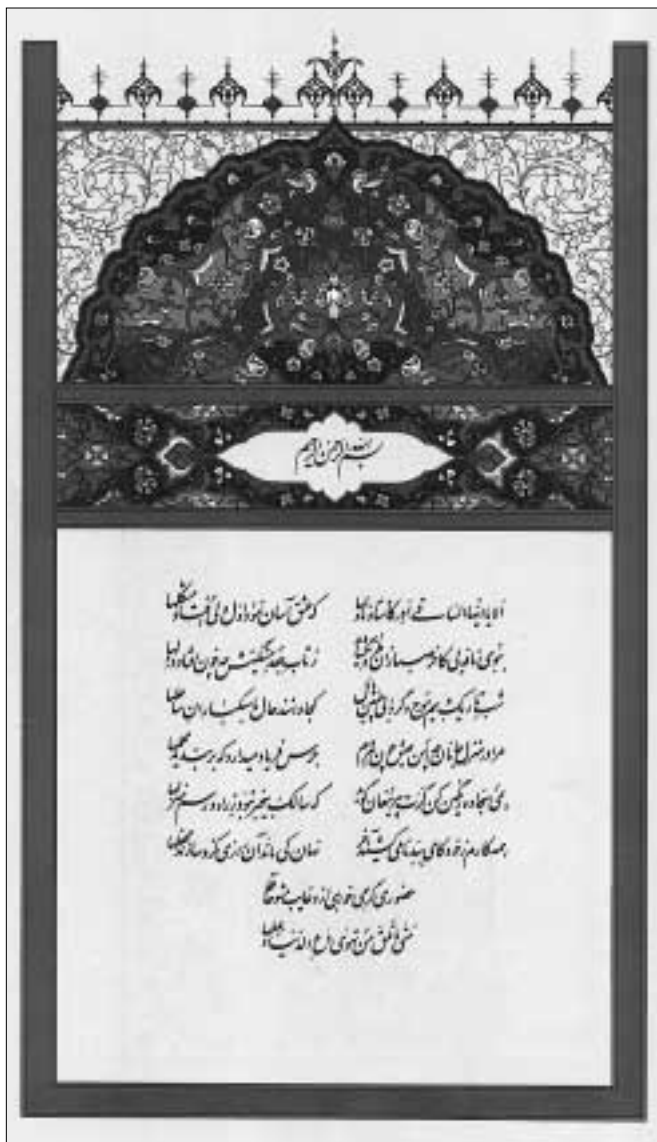 بسم الله الرحمن الرحیم
الا یا ایها الساقی ادر کاسا و ناولها که عشق آسان نمود اول ولی افتاد مشکلها
ببوی نافه‌ای کاخر صبا زان طره بگشاید ز تاب جعد مشکینش چه خون افتاد در دلها
شب تاریک و بیم موج و گردابی چنین هایل کجا دانند حال ما سبکباران ساحلها
مرا در منزل جانان چه امن عیش چون هر دم جرس فریاد میدارد که بربندید محملها
بمی سجاده رنگین کن گرت پیر مغان گوید که سالک بیخبر نبود ز راه و رسم منزلها
همه کارم ز خودکامی ببدنامی کشید آخر نهان کی ماند آن رازی کزو سازند محفلها
حضوری گر همی خواهی ازو غایب مشو حافظ
متی ما تلق من تهوی دع الدنیا و اهملها